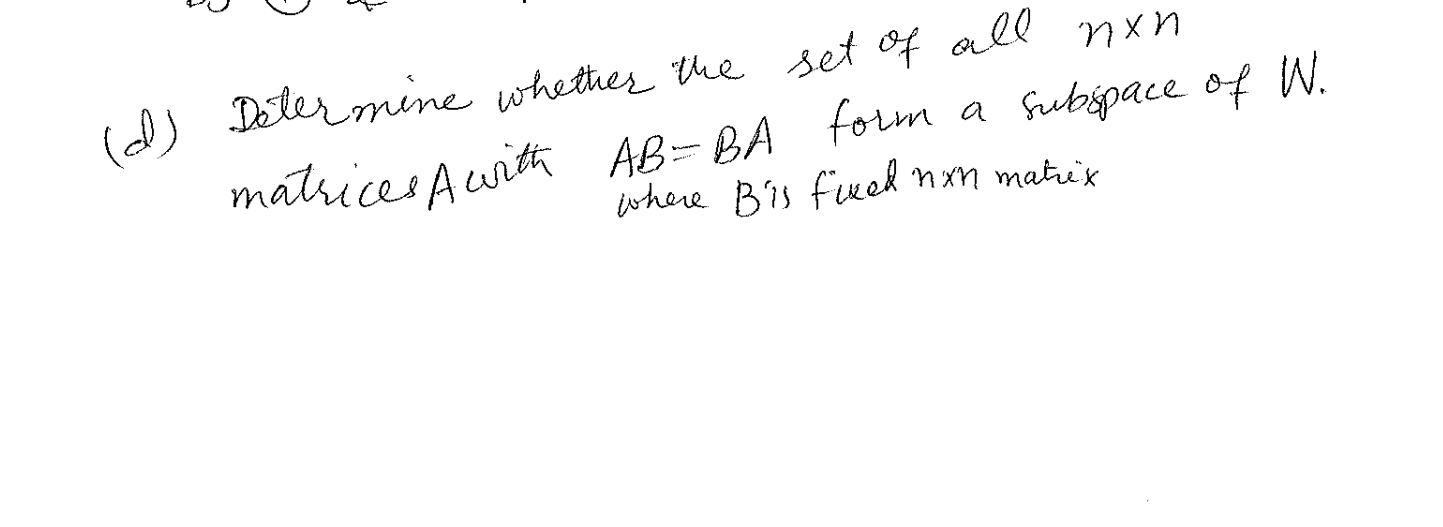 (d) Determine whether the set of all n×n
matrices A with AB = BA form a subspace of W.
where B is fixed n×n matrix